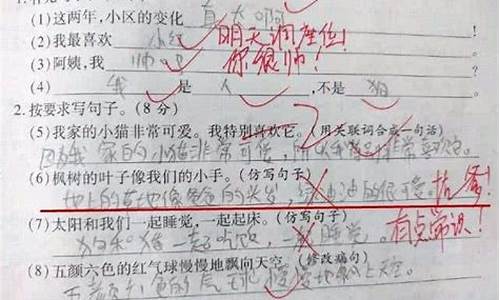 (1)这两年,小区的变化 真大啊
(2)我最喜欢 小红 明天调座位!
(3)阿姨,我 帅吧 你很帅!
(4) 我 是 人 ,不是 狗
2.按要求写句子。(8分)
(5)我家的小猫非常可爱。我特别喜欢它。(用关联词合成一句话)
因为我家的小猫非常可爱,所以我 非常喜欢它。
(6)枫树的叶子像我们的小手。(仿写句子)
地上的草地像爸爸的头发,绿油油的很 。
(7)太阳和我们一起睡觉,一起起床。(仿写句子) 有点常识!
狗和猪一起吃饭,一起睡觉。
(8)五颜六色的红气球慢慢地飘向天空。(修改病句)
五颜六色的气球慢慢地飘上天空。